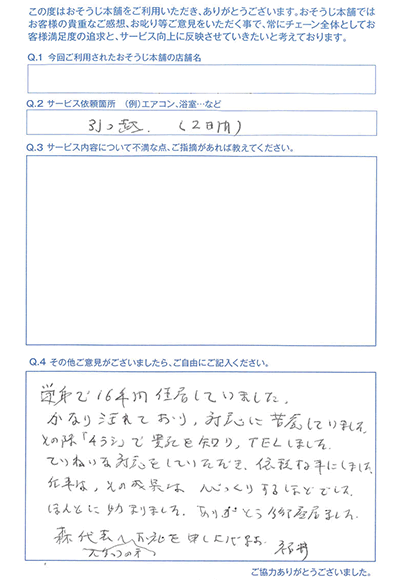 この度はおそうじ本舗をご利用いただき、ありがとうございます。おそうじ本舗では
お客様の貴重なご感想、お叱り等ご意見をいただく事で、常にチェーン全体としてお
客様満足度の追求と、サービス向上に反映させていきたいと考えております。
Q.1 今回ご利用されたおそうじ本舗の店舗名
Q.2 サービス依頼箇所 (例)エアコン、浴室…など
引っ越. (2日間)
Q.3 サービス内容について不満な点、ご指摘があれば教えてください。
Q.4 その他ご意見がございましたら、ご自由にご記入ください。
単身で16年間住居していました。
かなり汚れており、対応に苦慮していました
その際「チラシ」で貴社を知り、TELしました。
ていねいな対応をしていただき、依頼する事にしました
仕事は、その成果は びっくりするほどでした。
ほんとに助かりました。ありがとう御座居ました。
森代表へお礼を申し上げます
スタッフの方
ご協力ありがとうございました。